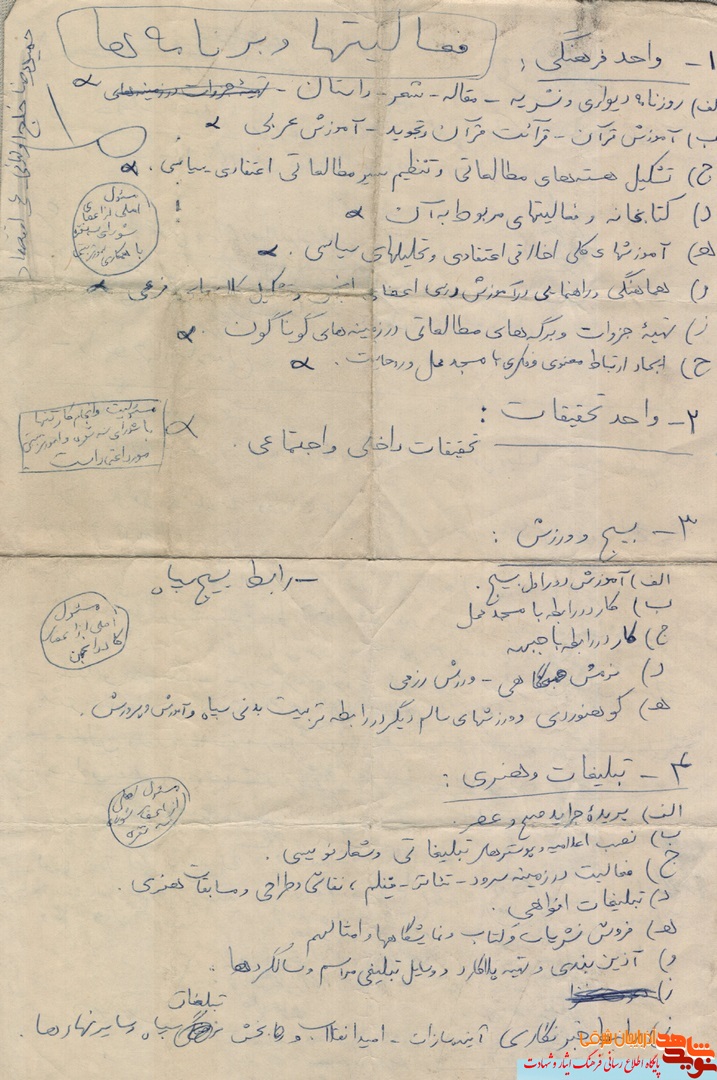 فعالیتها و برنامه ها
۱- واحد فرهنگی :
الف) روزنامه دیواری و نشریه - مقاله - شعر - داستان - تهیه جزوات در زمینه‌های
ب) آموزش قرآن - قرائت قرآن و تجوید - آموزش عربی
ج) تشکیل هسته‌های مطالعاتی و تنظیم سیر مطالعاتی اعتقادی سیاسی .
د) کتابخانه و فعالیتهای مربوط به آن
هـ) آموزشهای کلی اخلاقی اعتقادی و تحلیلهای سیاسی .
و) هماهنگی و راهنمایی در آموزش درسی اعضای و تشکیل کلاسهای فرعی
ز) تهیهٔ جزوات و برگه‌های مطالعاتی در زمینه‌های گوناگون .
ح) ایجاد ارتباط معنوی و فکری با مسجد محل و روحانیت .
مسئول
اصلی از اعضای
شورای
با همکاری
۲- واحد تحقیقات :
تحقیقات داخلی و اجتماعی .
مسئولیت و انجام کار تنها
با شورای و امور تربیتی
مورد اعتماد است
۳- بسیج و ورزش :
الف) آموزش دور اول بسیج . - رابط بسیج سپاه
ب) کار در رابطه با مسجد محل
ج) کار در رابطه با جبهه
د) نرمش صبحگاهی - ورزش رزمی
هـ) کوهنوردی و ورزشهای سالم دیگر در رابطه تربیت بدنی سپاه و آموزش و پرورش .
مسئول
اصلی از اعضای
کادر انجمن
۴- تبلیغات و هنری :
الف) بریدهٔ جراید صبح و عصر .
ب) نصب اعلامیه و پوسترهای تبلیغاتی و شعار نویسی .
ج) فعالیت در زمینه سرود - تئاتر - فیلم ، نقاشی و طراحی و مسابقات هنری .
د) تبلیغات افواهی .
هـ) فروش نشریات و کتاب و نمایشگاهها و امثالهم
و) آذین بندی و تهیه پلاکارد و وسایل تبلیغی مراسم و سالگردها .
ز)
تبلیغات
ز) خبرنگاری آینده سازان - امید انقلاب و بخش سپاه و سایر نهادها .
مسئول اصلی
از اعضای شورای
نوید شاهد
آذربایجان شرقی
پایگاه اطلاع رسانی فرهنگ ایثار و شهادت